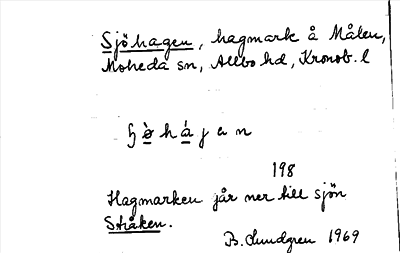 Sjöhagen, hagmark å Målen,
Moheda sn, Allbo hd, Kronob. l
198
Hagmarken går ner till sjön
Stråken.
B. Lundgren 1969